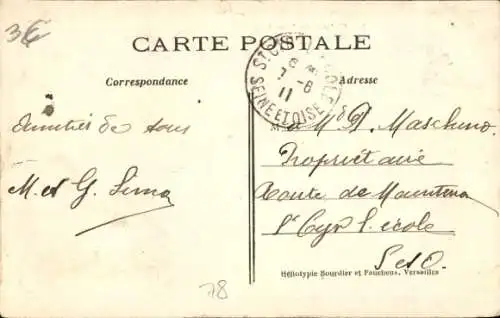 3€
CARTE POSTALE
Correspondance
Adresse
SEINE ET OISE
7 -6
11
Amitiés de tous
M. et G. Lima
à Md D. Mascheno
Propriétaire
Route de Maintenon
St Cyr l'école
S et O.
Héliotypie Bourdier et Faucheux, Versailles
78